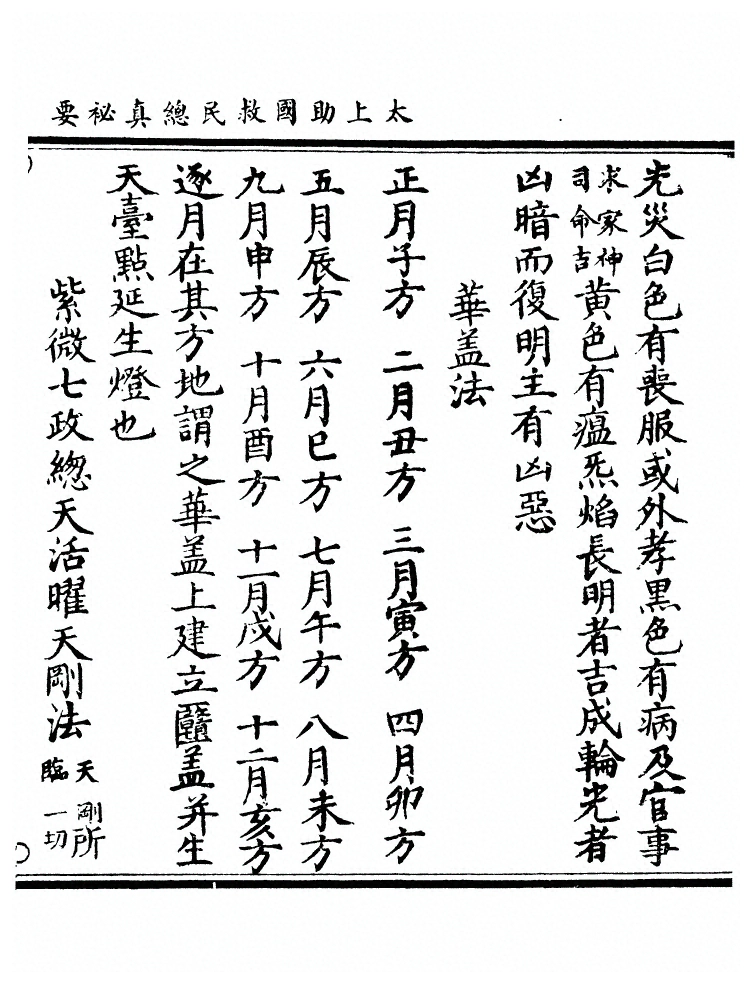 太上助國救民總真祕要
光災白色有喪服或外孝黑色有病及官事
求家神司命吉黃色有瘟炁焰長明者吉成輪光者
凶暗而復明主有凶惡
華盖法
正月子方 二月丑方 三月寅方 四月卯方
五月辰方 六月巳方 七月午方 八月未方
九月申方 十月酉方 十一月戌方 十二月亥方
逐月在其方地謂之華盖上建立盖并生
天臺點延生燈也
紫微七政總天活曜天剛法 天剛所臨一切